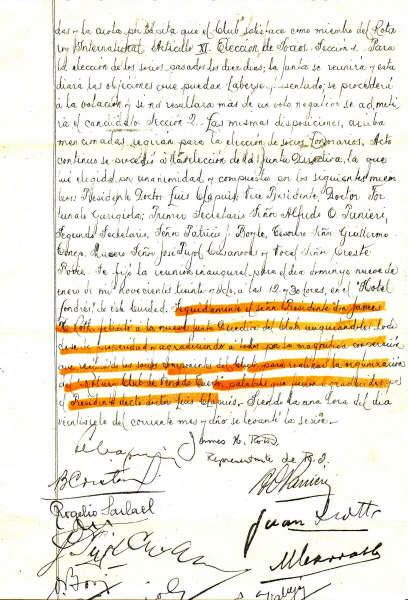 das y la cuota per cápita que el Club satisface como miembro del Rota
ry International. Artículo XI. Elección de socios. Sección 1. Para
la elección de los socios, pasados los diez días; la Junta se reunirá y estu
diará las objeciones que puedan haberse presentado; se procederá
á la votación y si no resultara más de un voto negativo se admi
tirá el candidato. Sección 2. Las mismas disposiciones, arriba
mencionadas, regirán para la elección de socios honorarios. Acto
continuo se procedió á la elección de la Junta Directiva, la que
fué elegida por unanimidad y compuesta en los siguientes miem
bros: Presidente Doctor Luis Chapuis, Vice Presidente, Doctor For
tunato Gariglio; Primer Secretario Señor Alfredo O. Panieri,
Segundo Secretario, Señor Patricio J. Boyle, Tesorero Señor Guillermo
Señor José Puyol Casanovas y Vocal Señor Oreste
Se fijó la reunión inaugural para el día domingo nueve de
enero de mil novecientos veinte y ocho, a las 12 y 30 horas, en el "Hotel
Londres" de esta Ciudad. Seguidamente el señor Presidente don James
H. Roth felicitó a la nueva Junta Directiva del Club augurándoles todo
de prosperidad y agradeciendo a todos por la magnífica cooperación
que de los socios componentes del Club, para realizar la organización
del Rotary Club de Venado Tuerto, palabras que fueron agradecidas por
el Presidente electo doctor Luis Chapuis. Siendo la una hora del día
veintisiete del corriente mes y año se levantó la sesión.
James H. Roth
Representante de R. I.
Rogelio
Juan